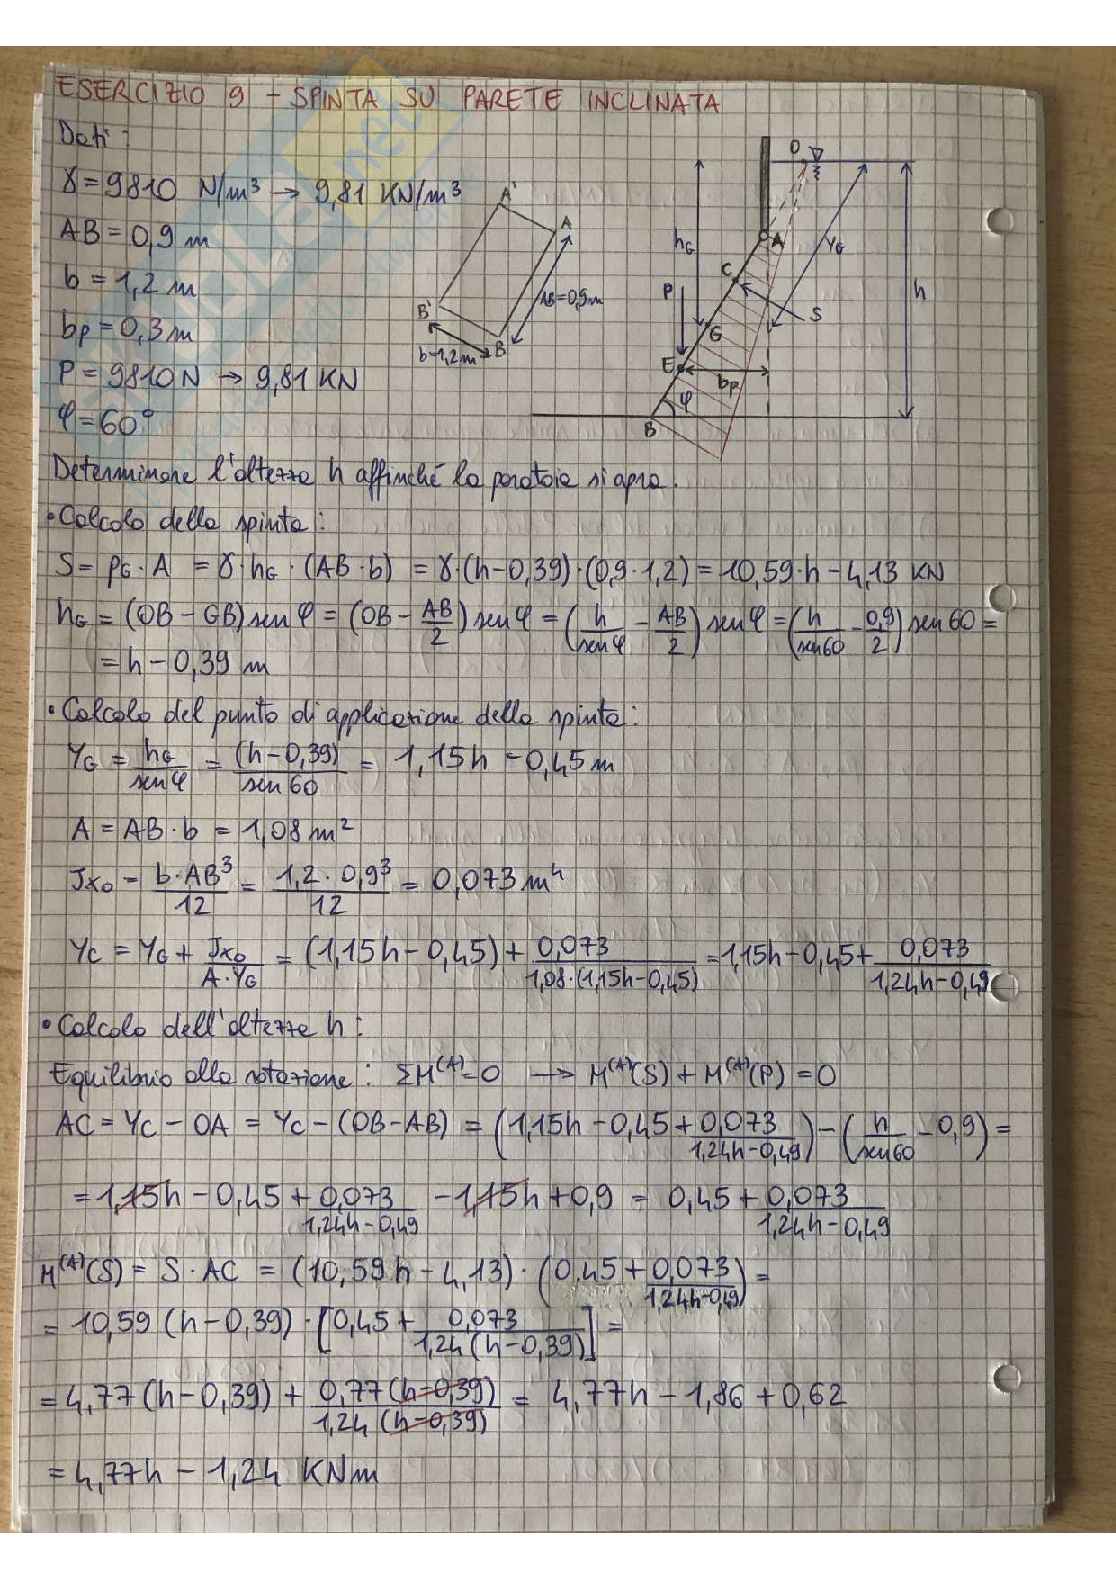 ESERCIZIO 9 - SPINTA SU PARETE INCLINATA
Dati:
γ = 9810 N/m³ → 9,81 KN/m³
AB = 0,9 m
b = 1,2 m
bp = 0,3 m
P = 9810 N → 9,81 KN
φ = 60°
A'
A
B'
B
AB=0,9m
b=1,2m
O
hG
A
YG
C
P
h
S
G
E
bp
φ
B
Determinare l'altezza h affinché la paratoia si apra.
• Calcolo della spinta:
S = pG · A = γ · hG · (AB · b) = γ · (h-0,39) · (0,9 · 1,2) = 10,59 · h - 4,13 KN
hG = (OB - GB) sen φ = (OB - AB/2) sen φ = (h/sen φ - AB/2) sen φ = (h/sen 60 - 0,9/2) sen 60 =
= h - 0,39 m
• Calcolo del punto di applicazione della spinta:
YG = hG/sen φ = (h-0,39)/sen 60 = 1,15h - 0,45 m
A = AB · b = 1,08 m²
Jx₀ = b·AB³/12 = 1,2 · 0,9³/12 = 0,073 m⁴
YC = YG + Jx₀/A·YG = (1,15h - 0,45) + 0,073/1,08·(1,15h-0,45) = 1,15h - 0,45 + 0,073/1,24h-0,49
• Calcolo dell'altezza h:
Equilibrio alla rotazione: ΣM(A)=0 → M(A)(S) + M(A)(P) = 0
AC = YC - OA = YC - (OB-AB) = (1,15h - 0,45 + 0,073/1,24h-0,49) - (h/sen60 - 0,9) =
= 1,15h - 0,45 + 0,073/1,24h-0,49 - 1,15h + 0,9 = 0,45 + 0,073/1,24h-0,49
M(A)(S) = S · AC = (10,59 h - 4,13) · (0,45 + 0,073/1,24h-0,49) =
= 10,59 (h-0,39) · [0,45 + 0,073/1,24(h-0,39)] =
= 4,77 (h-0,39) + 0,77(h-0,39)/1,24(h-0,39) = 4,77h - 1,86 + 0,62
= 4,77h - 1,24 KNm